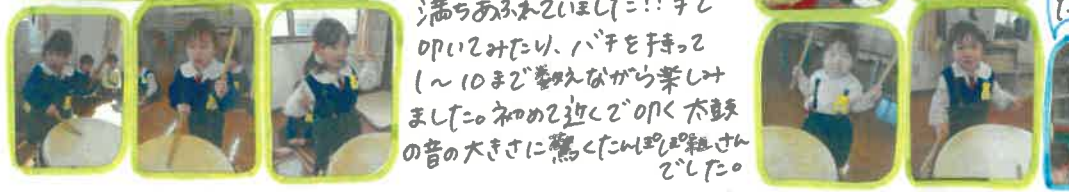 満ちあふれていました!!手で
叩いてみたり、バチを持って
1～10まで数えながら楽しみ
ました。初めて近くで叩く太鼓
の音の大きさに驚くたんぽぽ組さん
でした。
た